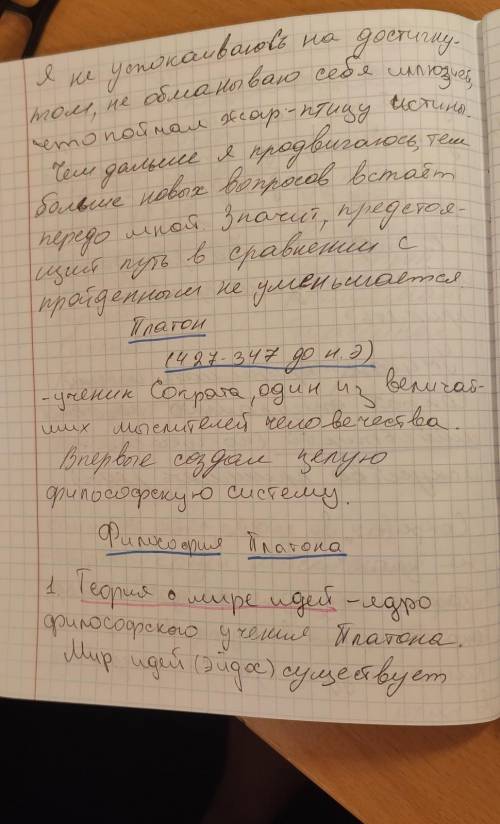 я не успокаиваюсь на достигну-
том, не обманываю себя иллюзией,
что поймал жар-птицу истины.
Чем дальше я продвигаюсь, тем
больше новых вопросов встаёт
передо мной. Значит, предстоя-
щий путь в сравнении с
пройденным не уменьшается
Платон
(427-347 до н.э)
-ученик Сократа, один из величай-
ших мыслителей человечества.
Впервые создал целую
философскую систему.
Философия Платона
1. Теория о мире идей - ядро
философского учения Платона.
Мир идей (эйдос) существует